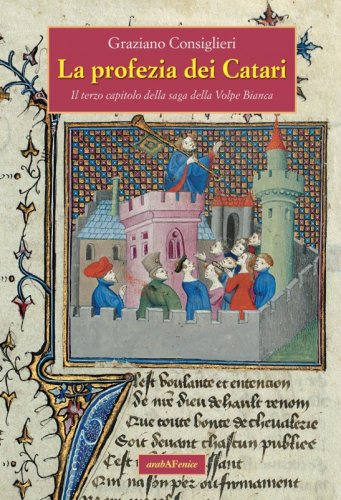 Graziano Consiglieri
La profezia dei Catari
Il terzo capitolo della saga della Volpe Bianca
est voulante et entencion
de nre dieu de hault renom
Que toute bonte de chevalerie
Soit devant chascun publiee
ssant
Qui na son par
arabAFenice